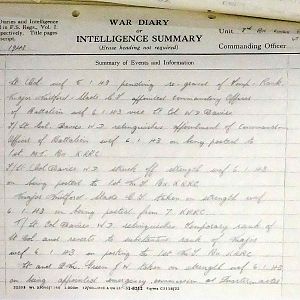 Diaries and Intelligence
in F.S. Regs., Vol. I.
ectively. Title pages
script.
1943
WAR DIARY
OR
INTELLIGENCE SUMMARY
(Erase heading not required)
Unit
Commanding Officer
Summary of Events and Information
Lt Col wef 6.1.43 pending re-grant of Temp. Rank.
Major Whitford-Slade C.L. appointed Commanding Officer
of Battalion wef 6.1.43 vice Lt Col W.D. Davies
T/Lt Col. Davies W.D. relinquishes appointment of command
Officer of Battalion wef 6.1.43 on being posted to
1st M.T. Bn. KRRC
T/Lt Col. Davies W.D. struck off strength wef 6.1.43
on being posted to 1st M.T. Bn. KRRC
Major Whitford-Slade C.L. taken on strength wef
6.1.43 on being posted from 7. KRRC
T/Lt Col Davies W.D. relinquishes temporary rank of
Lt Col and reverts to substantive rank of Major
wef 6.1.43 on posting to 1st M.T. Bn. KRRC
Lt and Q.M. Green J.W. taken on strength wef 6.1
on being emergency commission as Quarter